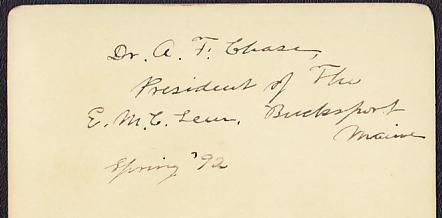 Dr. A. F. Chase,
President of The
E. M. C. Sem. Bucksport
Maine
Spring '92